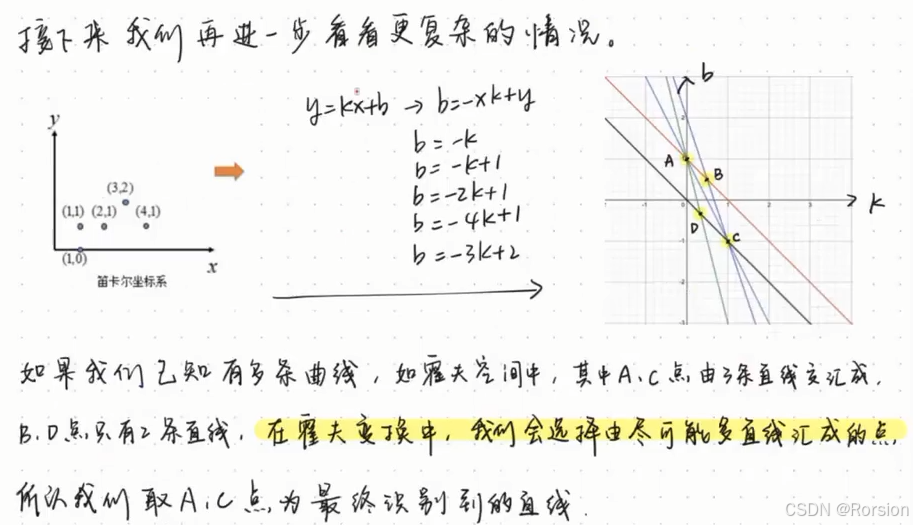 接下来我们再进一步看看更复杂的情况。
y
(3,2)
(1,1) (2,1) (4,1)
(1,0)
x
笛卡尔坐标系
y=kx+b → b=-xk+y
b=-k
b=-k+1
b=-2k+1
b=-4k+1
b=-3k+2
b
A
B
D
C
k
-1 0 1 2 3
2
-1
-2
-3
如果我们已知有多条曲线,如霍夫空间中,其中A、C点由3条直线交汇成,
B、D点只有2条直线,在霍夫变换中,我们会选择由尽可能多直线汇成的点,
所以我们取A、C点为最终识别到的直线.
CSDN @Rorsion